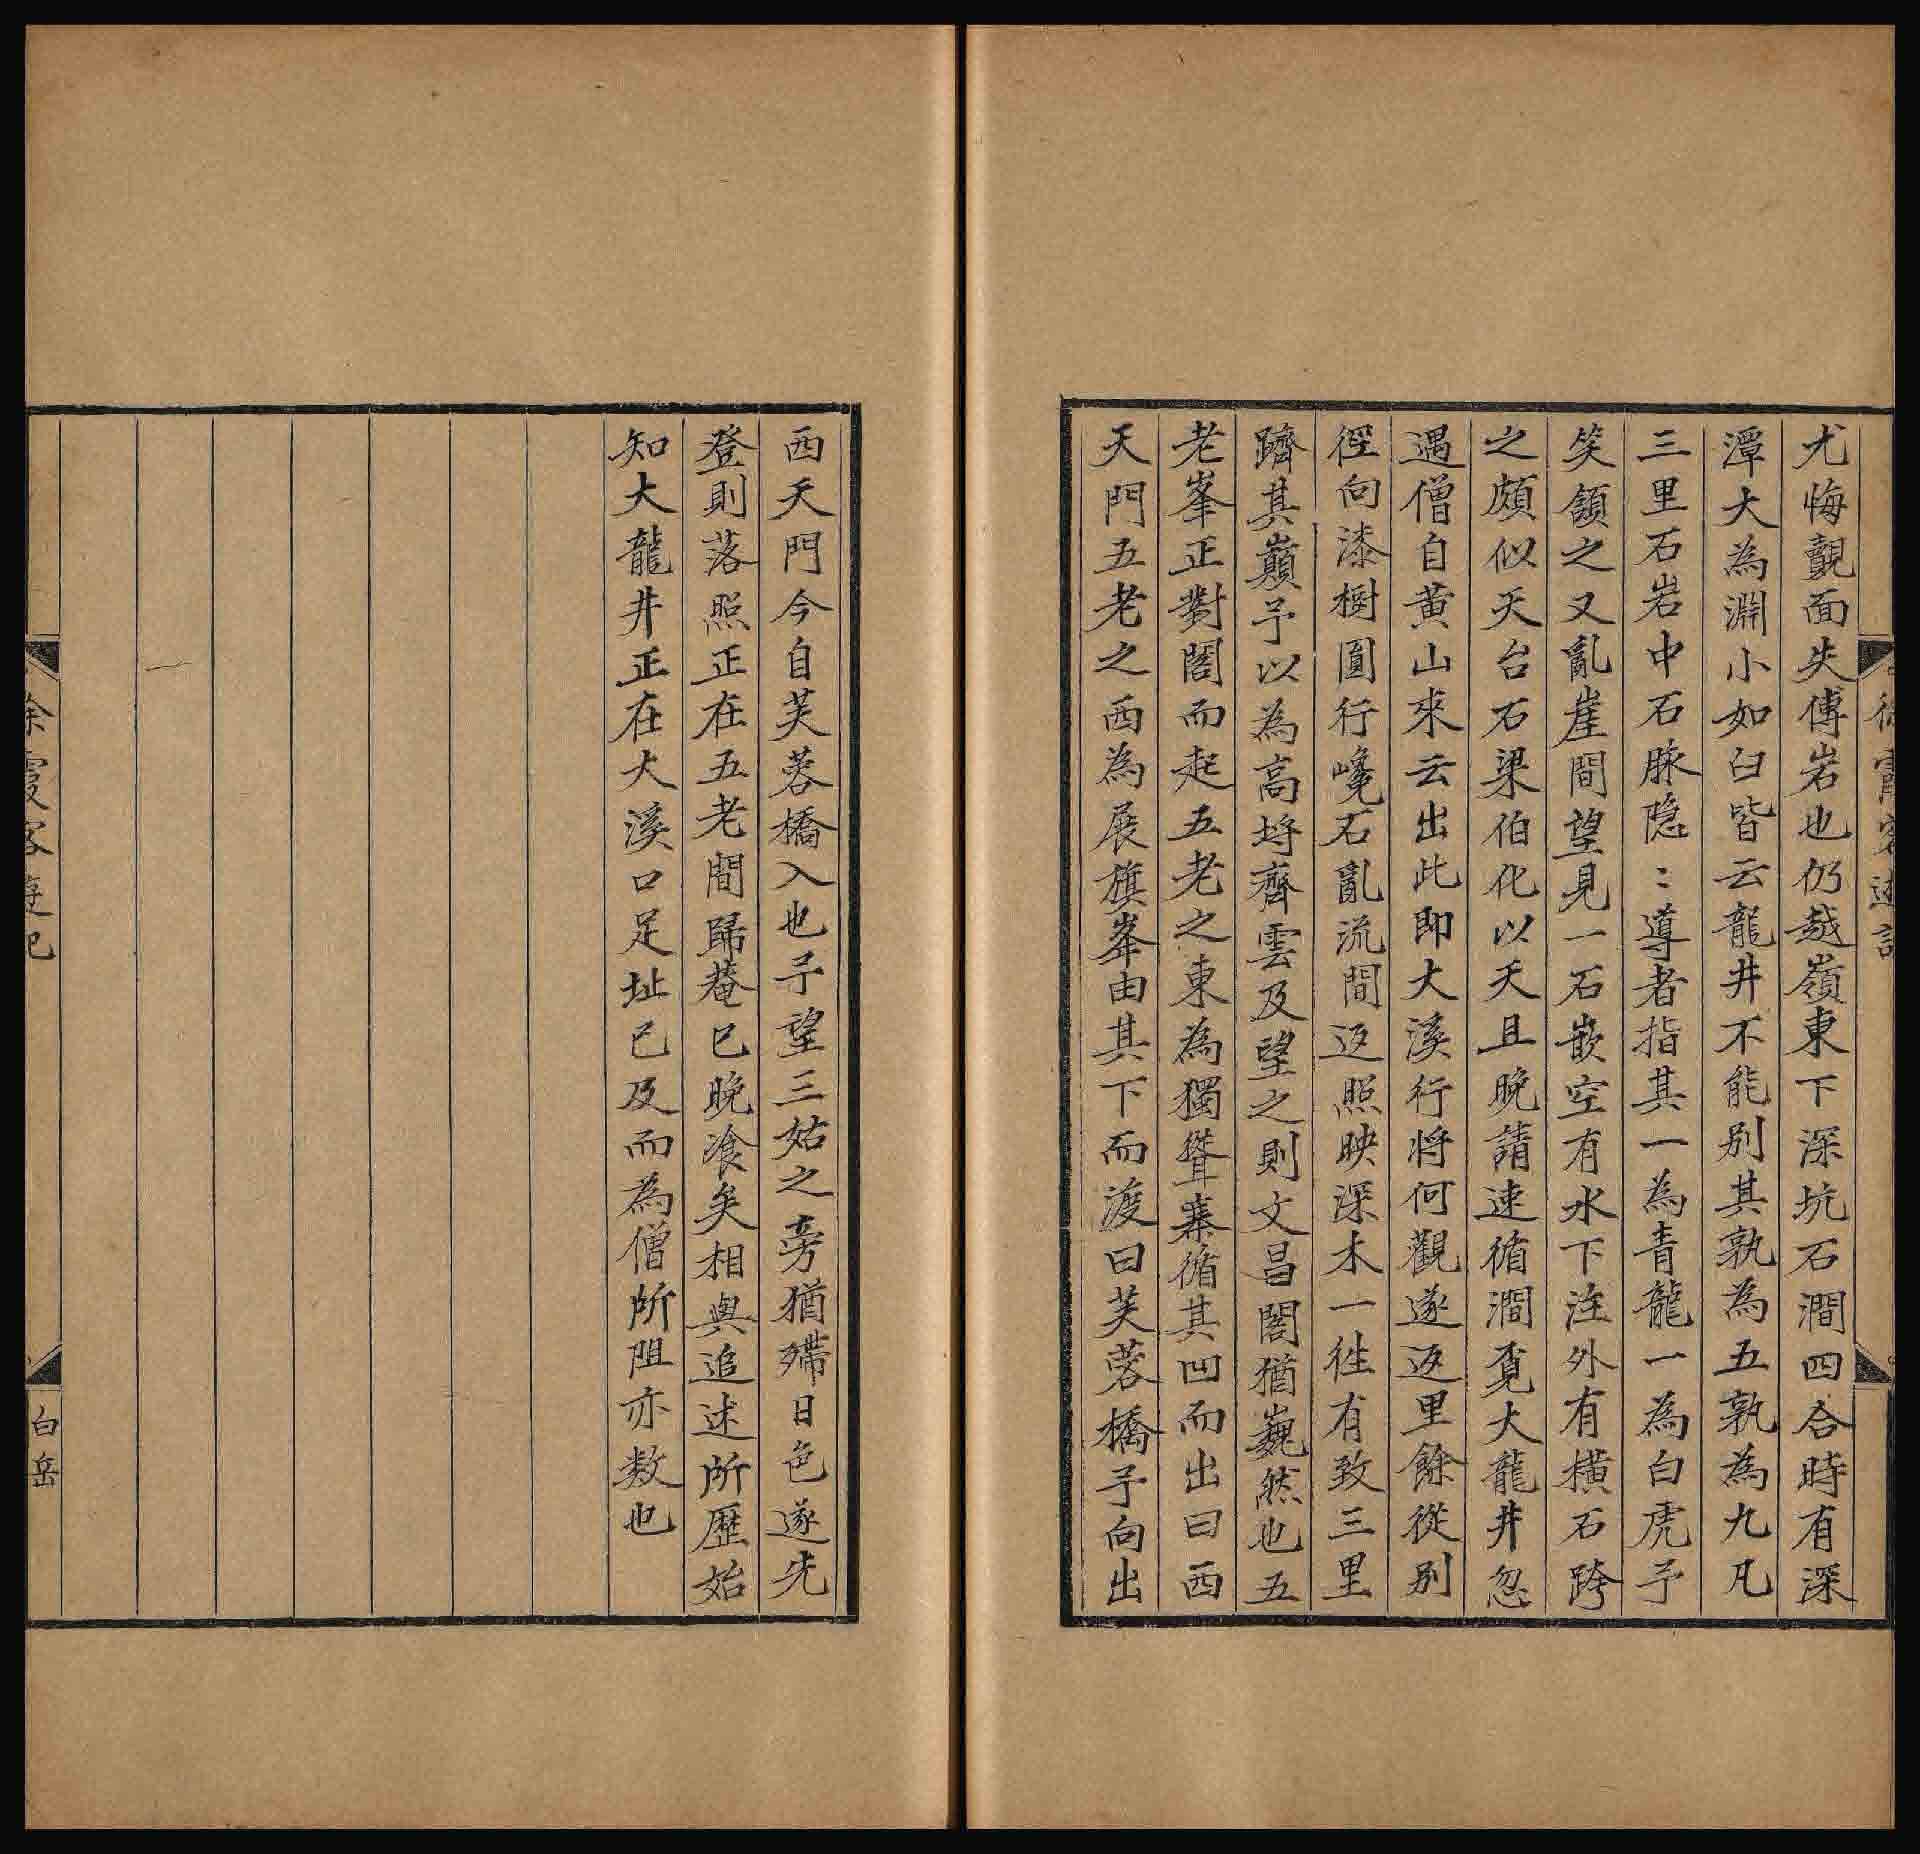 徐霞客遊記
尤悔觀面失傅岩也仍越嶺東下深坑石澗四合時有深
潭大為淵小如臼皆云龍井不能別其孰為五孰為九凡
三里石岩中石脉隐〻導者指其一為青龍一為白虎予
笑頷之又亂崖間望見一石嵌空有水下注外有橫石跨
之頗似天台石梁伯化以天且晚請速循澗覓大龍井忽
遇僧自黄山來云出此即大溪行將何觀遂返里餘從別
徑向漆樹圓行巉石亂流間返照映深木一徃有致三里
躋其巔予以為高埒齊雲及望之則文昌閣猶巍然也五
老峯正對閣而起五老之東為獨聳寨循其凹而出曰西
天門五老之西為展旗峯由其下而渡曰芙蓉橋予向出
西天門今自芙蓉橋入也予望三姑之旁猶殢日色遂先
登則落照正在五老間歸菴已晚飡矣相與追述所歷始
知大龍井正在大溪口足址已及而為僧所阻亦数也
徐霞客遊记
白岳